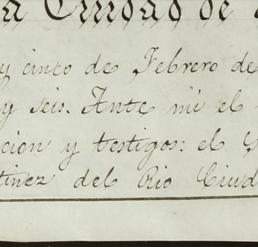 a Ciudad de
y cinco de Febrero de
y seis. Ante mi el
cion y testigos: el
tinez del Rio Ciud